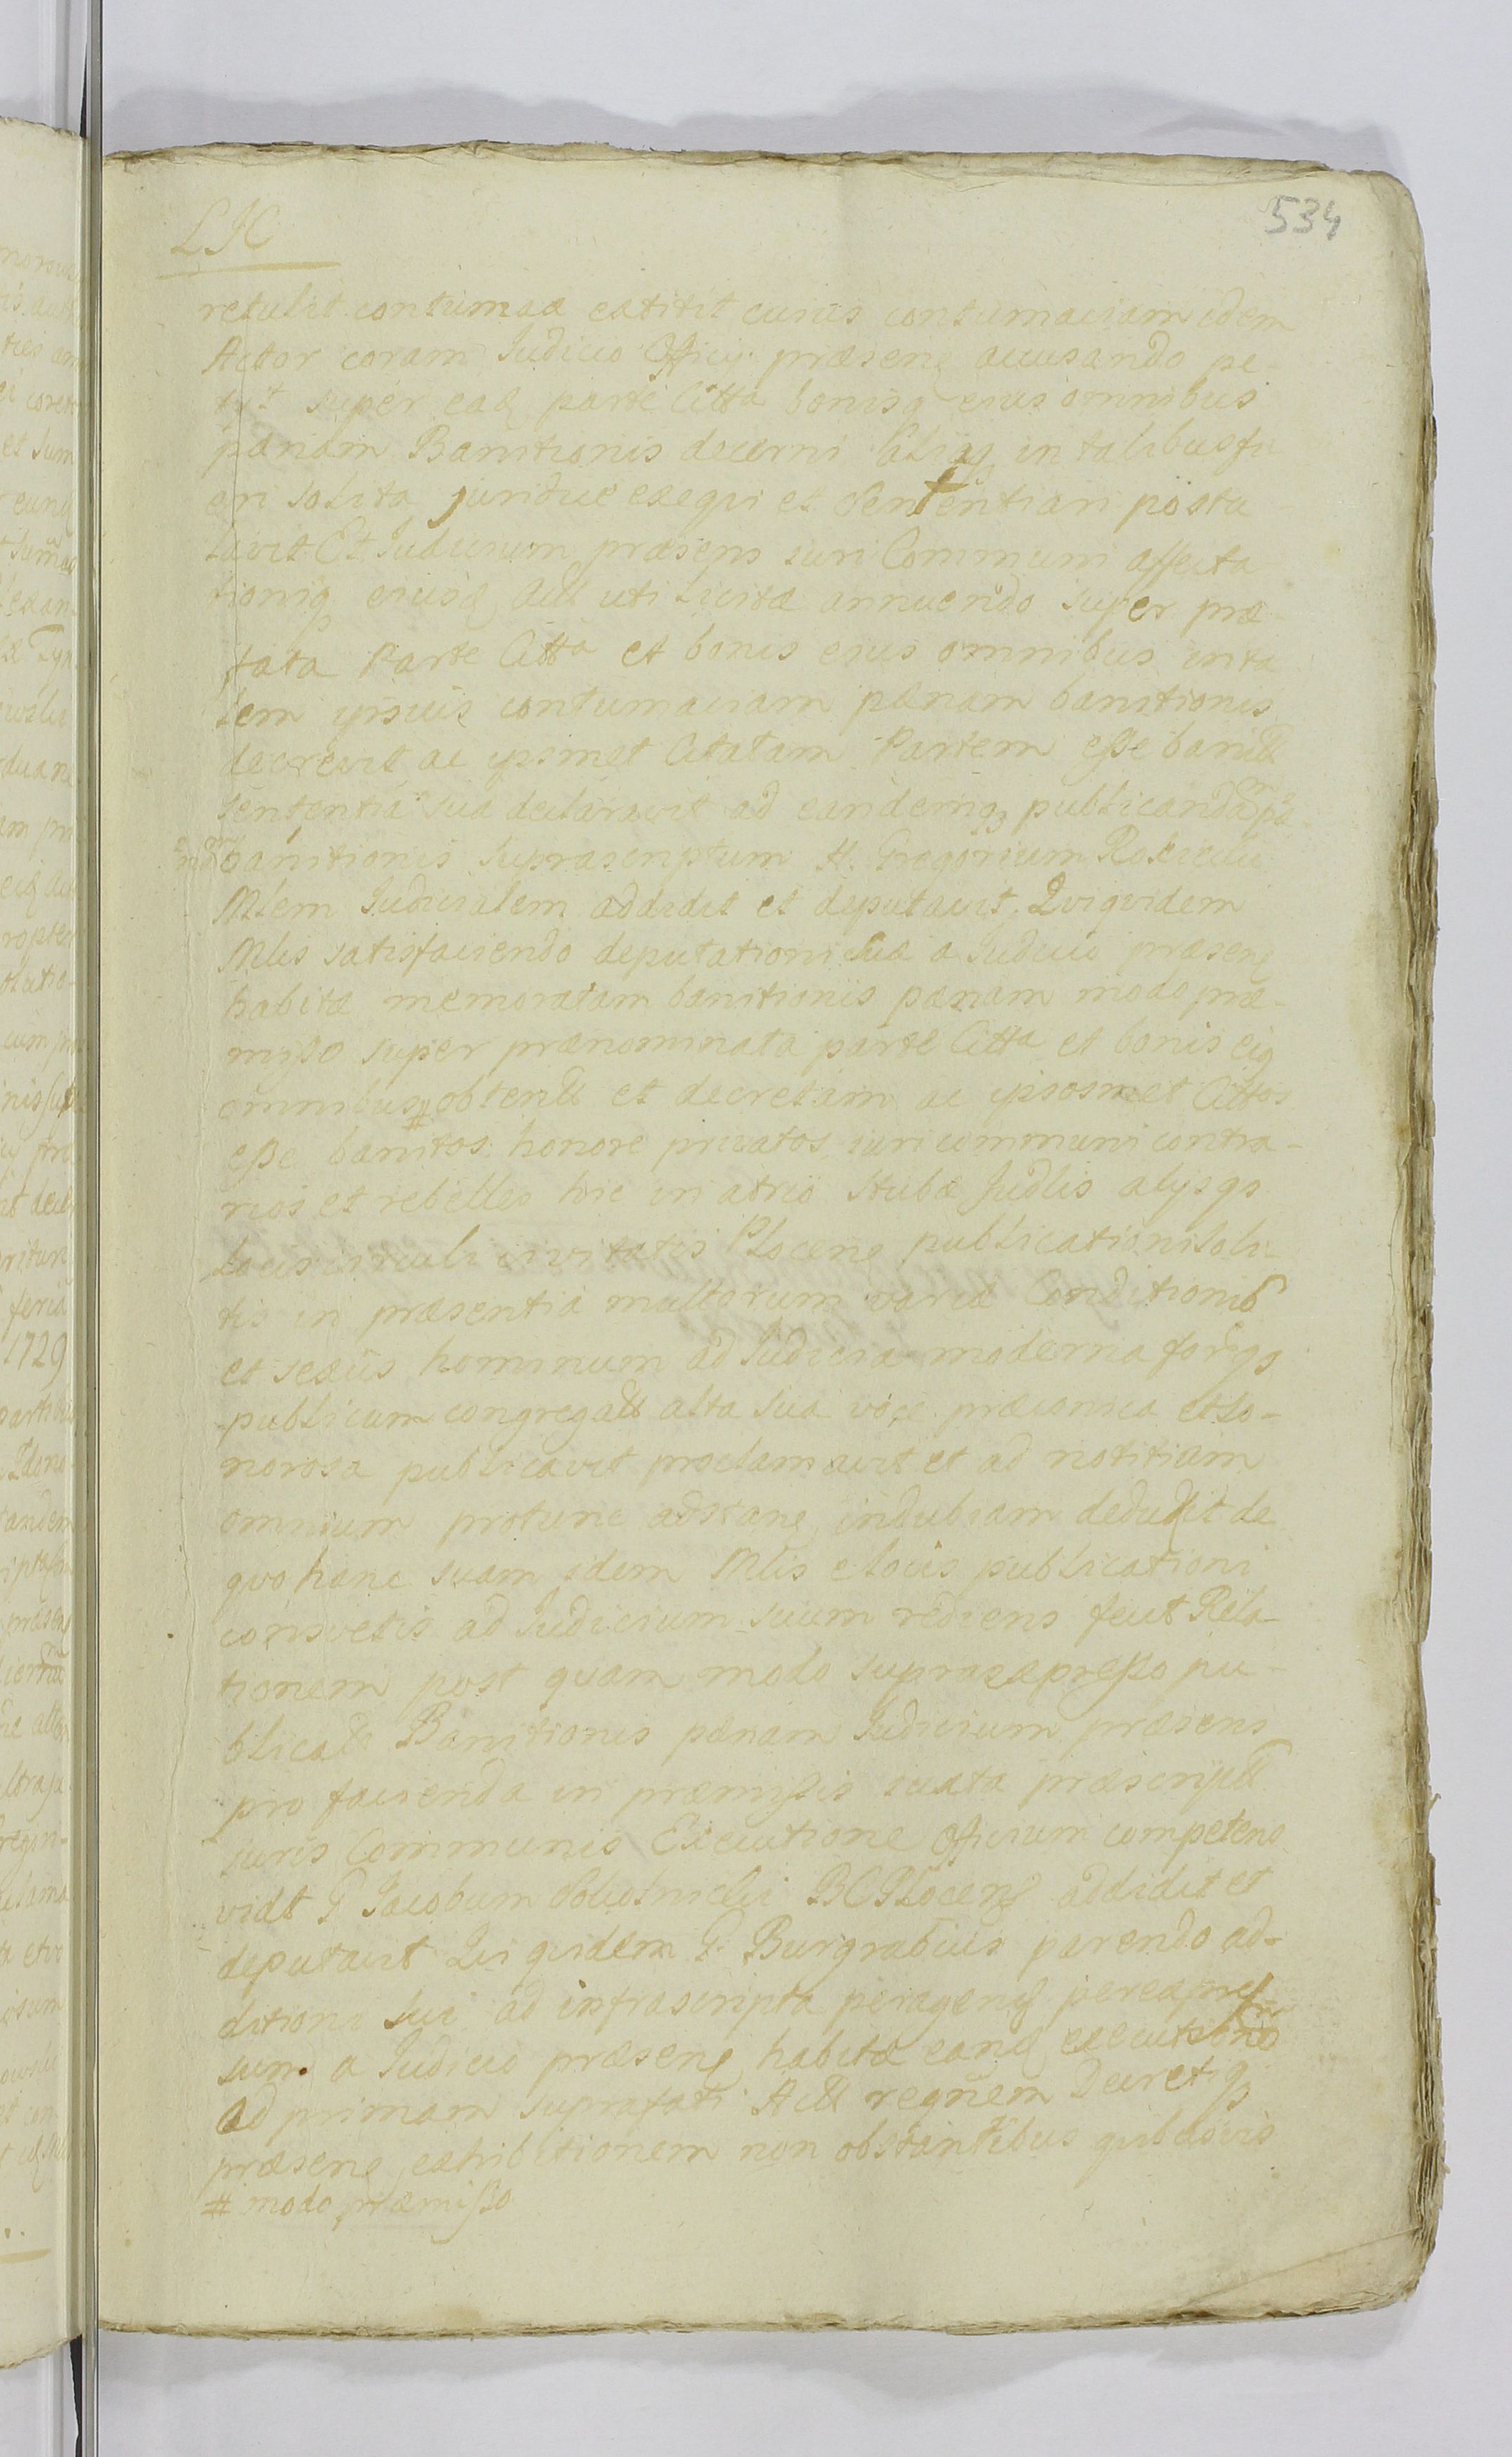 534
LJC
retulit contumax extitit cuius contumaciam idem
Actor coram Iudicio Officij præsenc accusando pe-
tyt super eadq parte Citta bonisq eius omnibus
pænam Banitionis decerni in talibus fi
eri solita juridice exeqvi et Sententiari postu-
lavit Et Iudicium præsens iuri Communi affecta-
tioniq eiusdq Actt uti licitæ annuendo super præ-
fata Parte Citta et bonis eius omnibus in ta
lem ipsius contumaciam pænam banitionis
decrevit ac ipsmet Citatam Partem esse banitt
sententia sua declaravit ad eandemq publicandam pæ-
nam banitionis suprascriptum H. Gregorium
Mlem Iudicialem addidit et deputavit. Qviqvidem
Mlis satisfaciendo deputationi suæ a Iudicio præsenc
habitæ memoratam banitionis pænam modo præ-
misso super prænominata parte Citta et bonis eiq
omnibus # obtentt et decretam ac ipsosmet Cittos
esse banitos honore privatos iuri communi contra-
rios et rebelles hic in atrio Stubæ Judlis alijsqs
locis circuli civitatis Plocenc publicationi soli-
tis in præsentia multorum variæ Conditionis
et sexus hominum ad Iudicia moderna forqs
publicum congregatt alta sua voce præconica et so-
norosa publicavit proclamavit et ad notitiam
omnium protunc adstanc indubiam deduxit de
qvo hanc suam idem Mlis e locis publicationi
consvetis ad Iudicium suum rediens fecit Rela-
tionem post qvam modo supraexpresso pu-
blicatt Banitionis pænam Iudicium præsens
pro facienda in præmissis iuxta præscriptt
iuris Communis Executione Officium competens
vidt G Iacobum BCPlocens addidit et
deputavit Qui qvidem G. Burgrabius parendo ad-
ditioni sui ad infrascripta peragendq per expres-
sum a Iudicio præsenc habitæ eandq executionem
ad primam suprafati Actt reqnem Decretiq
præsenc exhibitionem non obstantibus qvibusvis
# modo præmisso